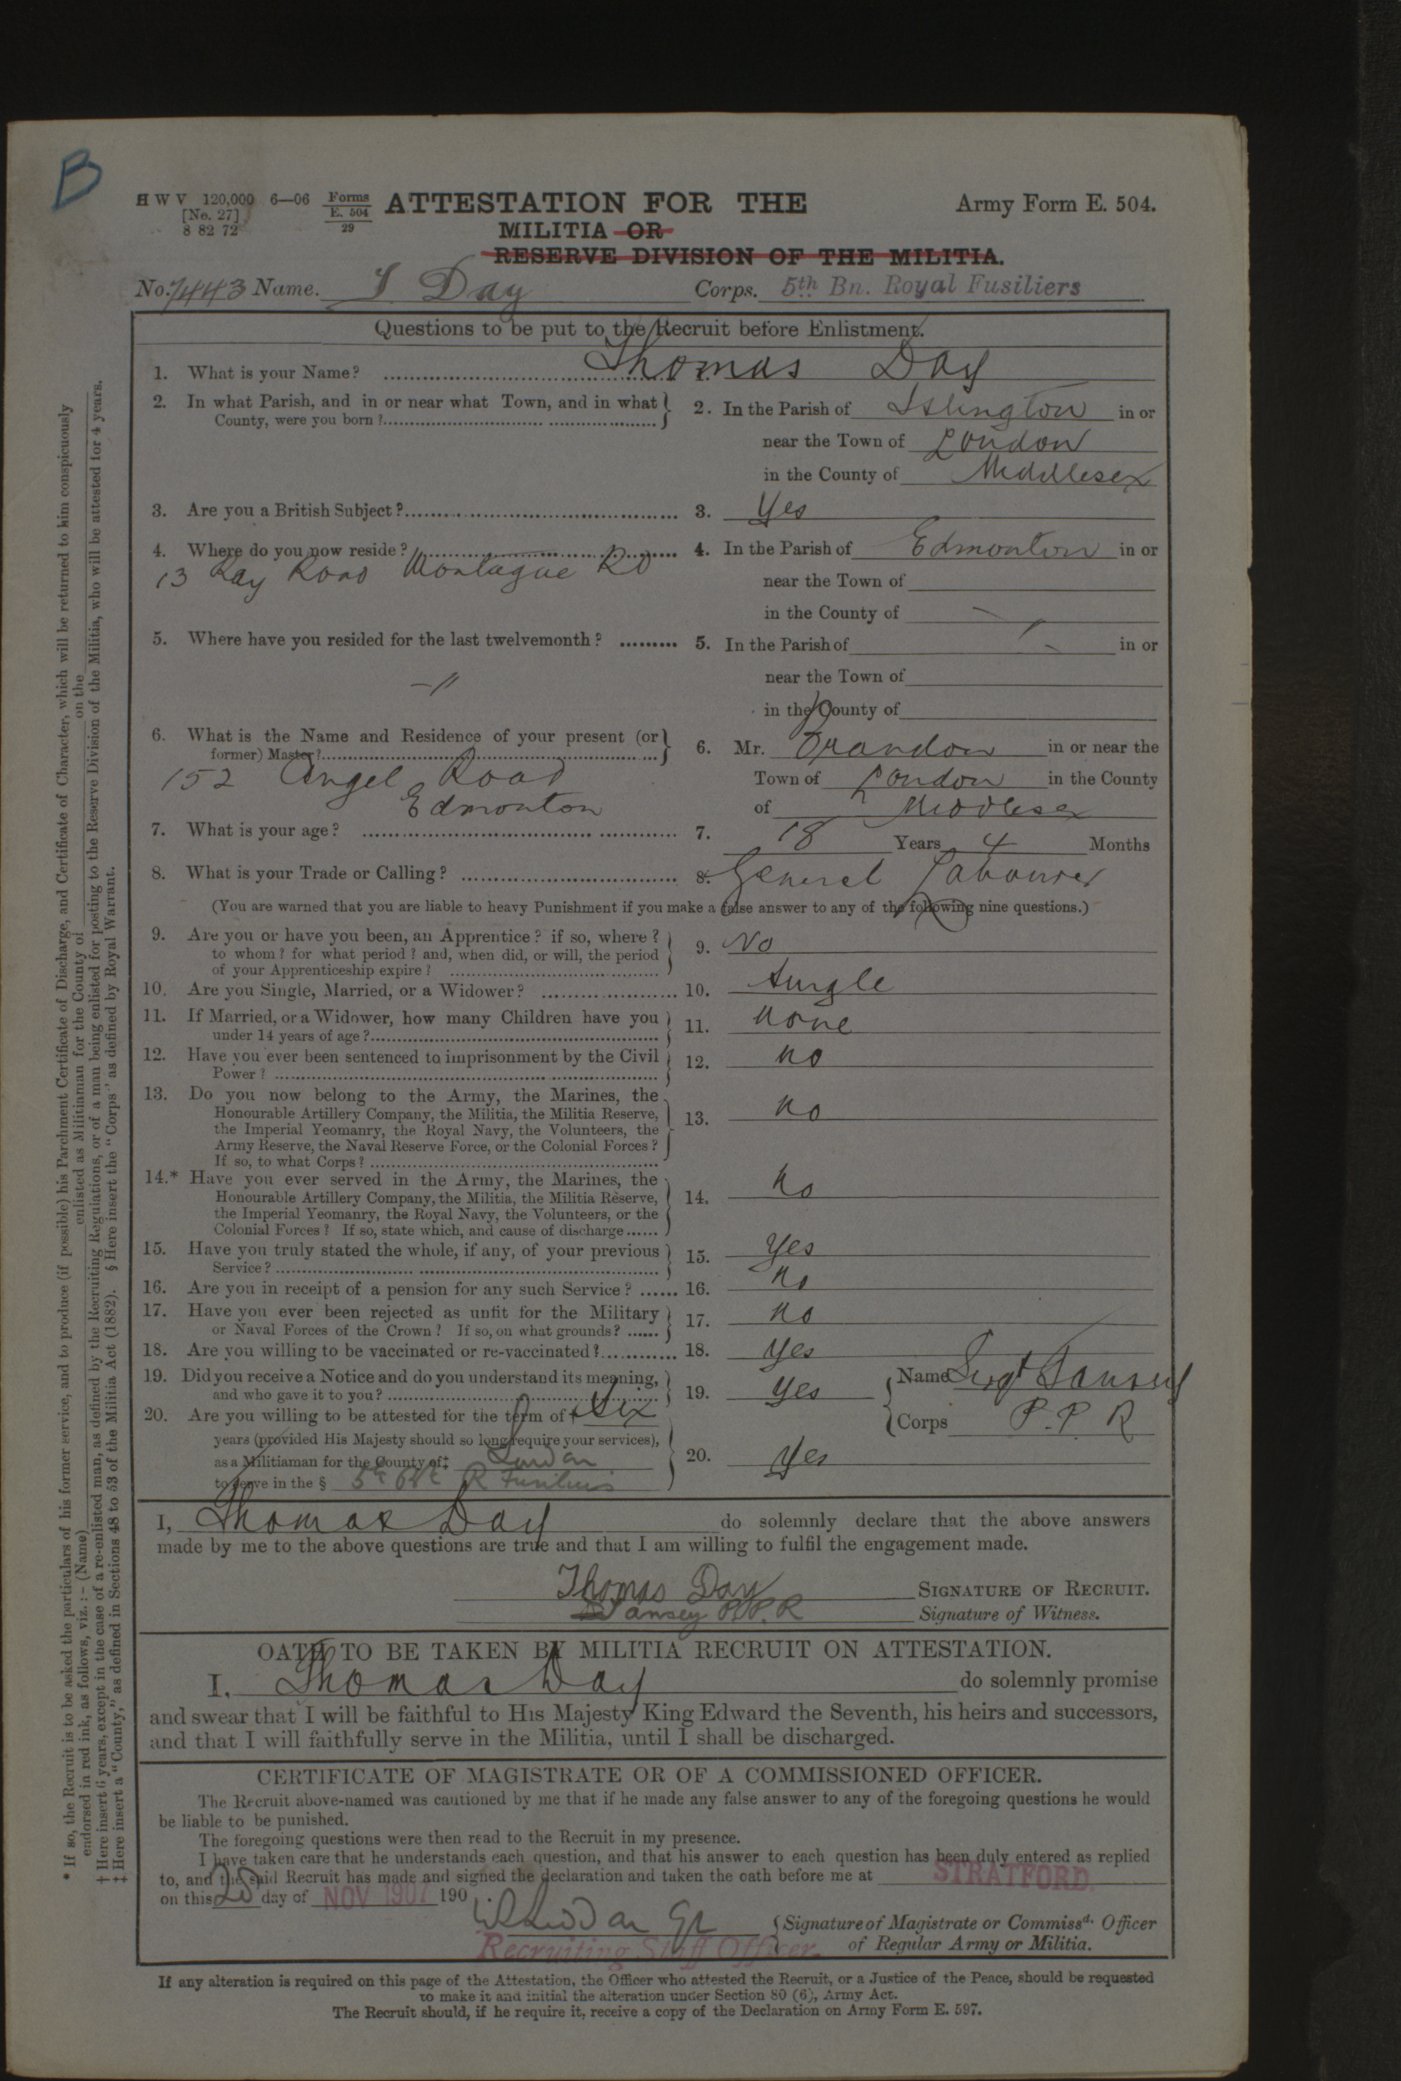 B
H W V 120,000 6—06 Forms E. 504 29 ATTESTATION FOR THE Army Form E. 504.
[No. 27]
8 82 72
MILITIA OR
RESERVE DIVISION OF THE MILITIA.
No. 7443 Name. T Day Corps. 5th Bn. Royal Fusiliers
Questions to be put to the Recruit before Enlistment.
1. What is your Name? Thomas Day
2. In what Parish, and in or near what Town, and in what County, were you born? 2. In the Parish of Islington in or
near the Town of London
in the County of Middlesex
3. Are you a British Subject? 3. Yes
4. Where do you now reside? 4. In the Parish of Edmonton in or
13 Ray Road Montague Rd near the Town of
in the County of
5. Where have you resided for the last twelvemonth? 5. In the Parish of in or
-"
near the Town of
in the County of
6. What is the Name and Residence of your present (or former) Master? 6. Mr. Brandon in or near the
152 Angel Road Town of London in the County
Edmonton of Middlesex
7. What is your age? 7. 18 Years 4 Months
8. What is your Trade or Calling? 8. General Labourer
(You are warned that you are liable to heavy Punishment if you make a false answer to any of the following nine questions.)
9. Are you or have you been, an Apprentice? if so, where? 9. No
to whom? for what period? and, when did, or will, the period
of your Apprenticeship expire?
10. Are you Single, Married, or a Widower? 10. Single
11. If Married, or a Widower, how many Children have you 11. None
under 14 years of age?
12. Have you ever been sentenced to imprisonment by the Civil 12. no
Power?
13. Do you now belong to the Army, the Marines, the 13. no
Honourable Artillery Company, the Militia, the Militia Reserve,
the Imperial Yeomanry, the Royal Navy, the Volunteers, the
Army Reserve, the Naval Reserve Force, or the Colonial Forces?
If so, to what Corps?
14.* Have you ever served in the Army, the Marines, the 14. no
Honourable Artillery Company, the Militia, the Militia Reserve,
the Imperial Yeomanry, the Royal Navy, the Volunteers, or the
Colonial Forces? If so, state which, and cause of discharge
15. Have you truly stated the whole, if any, of your previous 15. Yes
Service?
16. Are you in receipt of a pension for any such Service? 16. no
17. Have you ever been rejected as unfit for the Military 17. no
or Naval Forces of the Crown? If so, on what grounds?
18. Are you willing to be vaccinated or re-vaccinated? 18. Yes
19. Did you receive a Notice and do you understand its meaning, 19. Yes Name Sergt Tansey
and who gave it to you? Corps P.P.R
20. Are you willing to be attested for the term of † Six
years (provided His Majesty should so long require your services), 20. Yes
as a Militiaman for the County of ‡ London
to serve in the § 5th Bn R Fusiliers
I, Thomas Day do solemnly declare that the above answers
made by me to the above questions are true and that I am willing to fulfil the engagement made.
Thomas Day SIGNATURE OF RECRUIT.
Tansey P.P.R Signature of Witness.
OATH TO BE TAKEN BY MILITIA RECRUIT ON ATTESTATION.
I, Thomas Day do solemnly promise
and swear that I will be faithful to His Majesty King Edward the Seventh, his heirs and successors,
and that I will faithfully serve in the Militia, until I shall be discharged.
CERTIFICATE OF MAGISTRATE OR OF A COMMISSIONED OFFICER.
The Recruit above-named was cautioned by me that if he made any false answer to any of the foregoing questions he would
be liable to be punished.
The foregoing questions were then read to the Recruit in my presence.
I have taken care that he understands each question, and that his answer to each question has been duly entered as replied
to, and the said Recruit has made and signed the declaration and taken the oath before me at STRATFORD.
on this 28 day of NOV 1907 190
Signature of Magistrate or Commissd. Officer
Recruiting Staff Officer. of Regular Army or Militia.
If any alteration is required on this page of the Attestation, the Officer who attested the Recruit, or a Justice of the Peace, should be requested
to make it and initial the alteration under Section 80 (6), Army Act.
The Recruit should, if he require it, receive a copy of the Declaration on Army Form E. 597.
* If so, the Recruit is to be asked the particulars of his former service, and to produce (if possible) his Parchment Certificate of Discharge, and Certificate of Character, which will be returned to him conspicuously
endorsed in red ink, as follows, viz.:—(Name) enlisted as Militiaman for the County of on the
† Here insert 6 years, except in the case of a re-enlisted man, as defined by the Recruiting Regulations, or of a man being enlisted for posting to the Reserve Division of the Militia, who will be attested for 4 years.
‡ Here insert a "County," as defined in Sections 48 to 53 of the Militia Act (1882). § Here insert the "Corps" as defined by Royal Warrant.